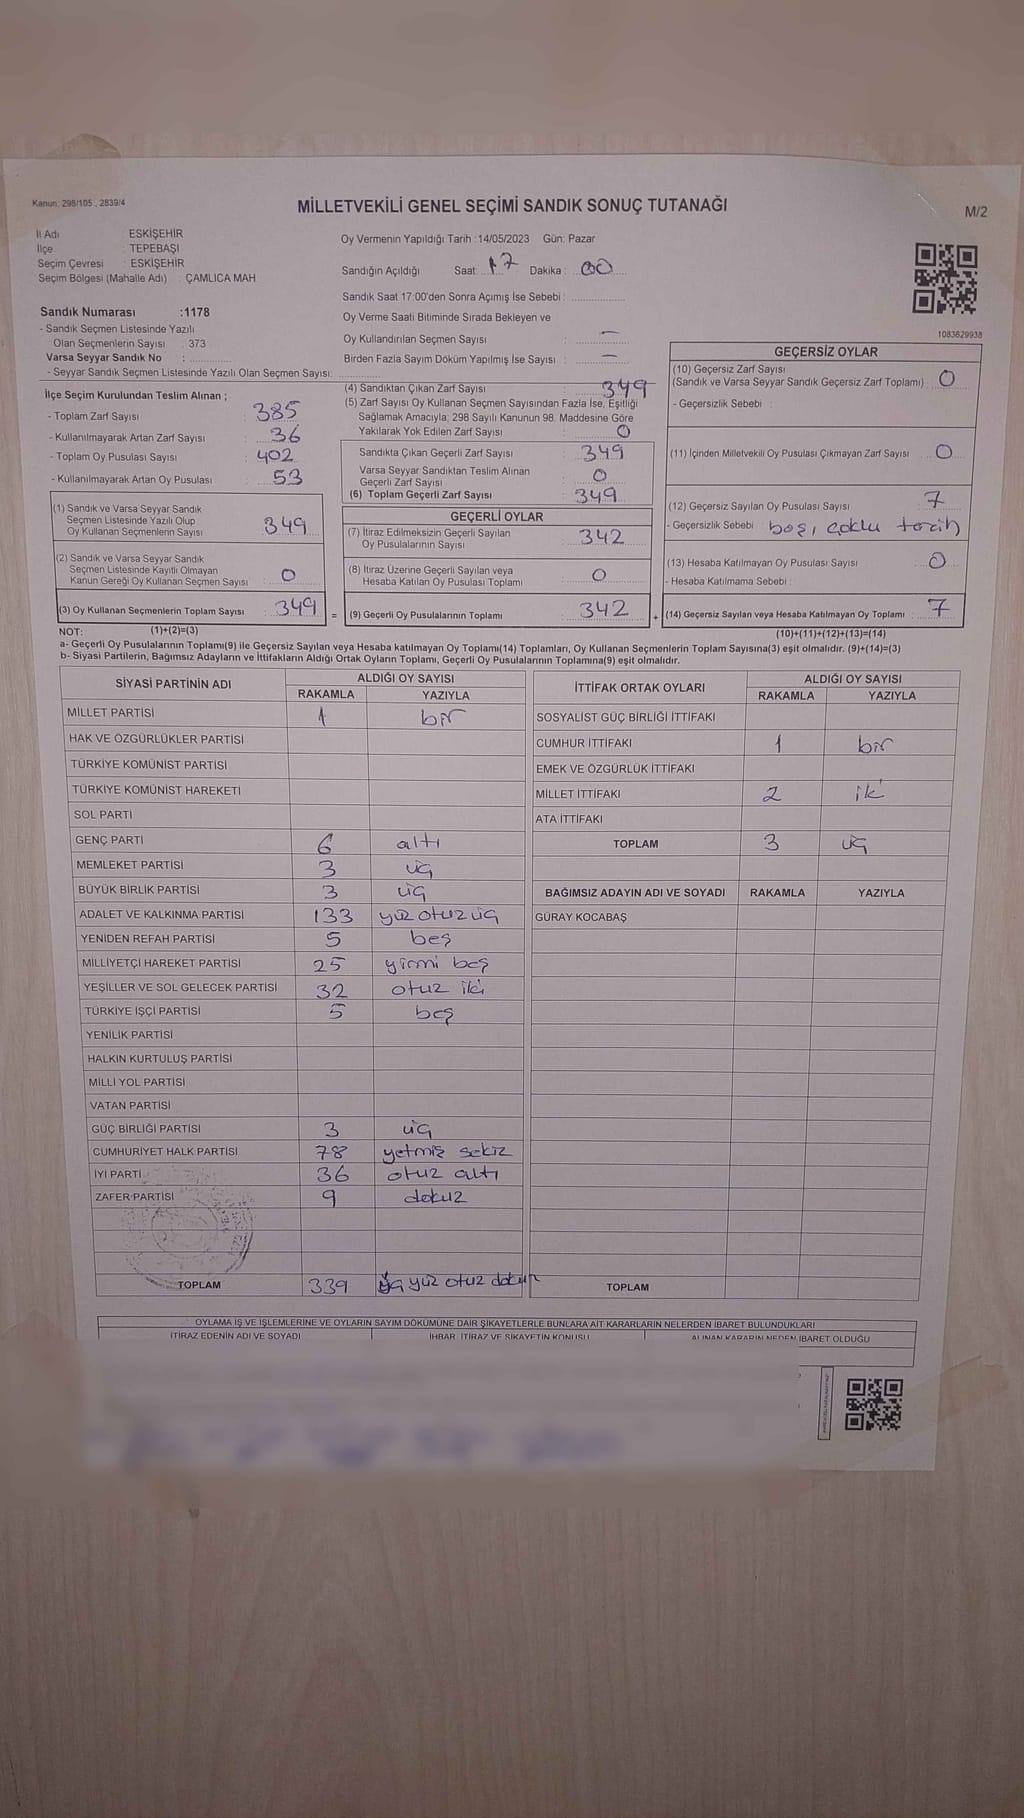 Kanun: 298/105 , 2839/4
MİLLETVEKİLİ GENEL SEÇİMİ SANDIK SONUÇ TUTANAĞI
M/2
İl Adı ESKİŞEHİR
İlçe : TEPEBAŞI
Seçim Çevresi : ESKİŞEHİR
Seçim Bölgesi (Mahalle Adı) : ÇAMLICA MAH
Sandık Numarası :1178
- Sandık Seçmen Listesinde Yazılı
Olan Seçmenlerin Sayısı : 373
Varsa Seyyar Sandık No :
- Seyyar Sandık Seçmen Listesinde Yazılı Olan Seçmen Sayısı:
Oy Vermenin Yapıldığı Tarih :14/05/2023 Gün: Pazar
Sandığın Açıldığı Saat: 17 Dakika : 00
Sandık Saat 17:00'den Sonra Açımış İse Sebebi :
Oy Verme Saati Bitiminde Sırada Bekleyen ve
Oy Kullandırılan Seçmen Sayısı : —
Birden Fazla Sayım Döküm Yapılmış İse Sayısı : —
1083629938
İlçe Seçim Kurulundan Teslim Alınan ;
- Toplam Zarf Sayısı : 385
- Kullanılmayarak Artan Zarf Sayısı : 36
- Toplam Oy Pusulası Sayısı : 402
- Kullanılmayarak Artan Oy Pusulası : 53
(1) Sandık ve Varsa Seyyar Sandık
Seçmen Listesinde Yazılı Olup
Oy Kullanan Seçmenlerin Sayısı : 349
(2) Sandık ve Varsa Seyyar Sandık
Seçmen Listesinde Kayıtlı Olmayan
Kanun Gereği Oy Kullanan Seçmen Sayısı : 0
(3) Oy Kullanan Seçmenlerin Toplam Sayısı : 349 =
(4) Sandıktan Çıkan Zarf Sayısı : 349
(5) Zarf Sayısı Oy Kullanan Seçmen Sayısından Fazla İse, Eşitliği
Sağlamak Amacıyla; 298 Sayılı Kanunun 98. Maddesine Göre
Yakılarak Yok Edilen Zarf Sayısı : 0
Sandıkta Çıkan Geçerli Zarf Sayısı : 349
Varsa Seyyar Sandıktan Teslim Alınan
Geçerli Zarf Sayısı : 0
(6) Toplam Geçerli Zarf Sayısı : 349
GEÇERLİ OYLAR
(7) İtiraz Edilmeksizin Geçerli Sayılan
Oy Pusulalarının Sayısı : 342
(8) İtiraz Üzerine Geçerli Sayılan veya
Hesaba Katılan Oy Pusulası Toplamı : 0
(9) Geçerli Oy Pusulalarının Toplamı : 342 +
GEÇERSİZ OYLAR
(10) Geçersiz Zarf Sayısı
(Sandık ve Varsa Seyyar Sandık Geçersiz Zarf Toplamı) : 0
- Geçersizlik Sebebi :
(11) İçinden Milletvekili Oy Pusulası Çıkmayan Zarf Sayısı : 0
(12) Geçersiz Sayılan Oy Pusulası Sayısı : 7
- Geçersizlik Sebebi boş, çoklu tercih
(13) Hesaba Katılmayan Oy Pusulası Sayısı : 0
- Hesaba Katılmama Sebebi :
(14) Geçersiz Sayılan veya Hesaba Katılmayan Oy Toplamı : 7
NOT: (1)+(2)=(3) (10)+(11)+(12)+(13)=(14)
a- Geçerli Oy Pusulalarının Toplamı(9) ile Geçersiz Sayılan veya Hesaba katılmayan Oy Toplamı(14) Toplamları, Oy Kullanan Seçmenlerin Toplam Sayısına(3) eşit olmalıdır. (9)+(14)=(3)
b- Siyasi Partilerin, Bağımsız Adayların ve İttifakların Aldığı Ortak Oyların Toplamı, Geçerli Oy Pusulalarının Toplamına(9) eşit olmalıdır.
SİYASİ PARTİNİN ADI ALDIĞI OY SAYISI
RAKAMLA YAZIYLA
MİLLET PARTİSİ 1 bir
HAK VE ÖZGÜRLÜKLER PARTİSİ
TÜRKİYE KOMÜNİST PARTİSİ
TÜRKİYE KOMÜNİST HAREKETİ
SOL PARTİ
GENÇ PARTİ 6 altı
MEMLEKET PARTİSİ 3 üç
BÜYÜK BİRLİK PARTİSİ 3 üç
ADALET VE KALKINMA PARTİSİ 133 yüz otuz üç
YENİDEN REFAH PARTİSİ 5 beş
MİLLİYETÇİ HAREKET PARTİSİ 25 yirmi beş
YEŞİLLER VE SOL GELECEK PARTİSİ 32 otuz iki
TÜRKİYE İŞÇİ PARTİSİ 5 beş
YENİLİK PARTİSİ
HALKIN KURTULUŞ PARTİSİ
MİLLİ YOL PARTİSİ
VATAN PARTİSİ
GÜÇ BİRLİĞİ PARTİSİ 3 üç
CUMHURİYET HALK PARTİSİ 78 yetmiş sekiz
İYİ PARTİ 36 otuz altı
ZAFER PARTİSİ 9 dokuz
TOPLAM 339 üç yüz otuz dokuz
İTTİFAK ORTAK OYLARI ALDIĞI OY SAYISI
RAKAMLA YAZIYLA
SOSYALİST GÜÇ BİRLİĞİ İTTİFAKI
CUMHUR İTTİFAKI 1 bir
EMEK VE ÖZGÜRLÜK İTTİFAKI
MİLLET İTTİFAKI 2 iki
ATA İTTİFAKI
TOPLAM 3 üç
BAĞIMSIZ ADAYIN ADI VE SOYADI RAKAMLA YAZIYLA
GÜRAY KOCABAŞ
TOPLAM
OYLAMA İŞ VE İŞLEMLERİNE VE OYLARIN SAYIM DÖKÜMÜNE DAİR ŞİKAYETLERLE BUNLARA AİT KARARLARIN NELERDEN İBARET BULUNDUKLARI
İTİRAZ EDENİN ADI VE SOYADI İHBAR, İTİRAZ VE ŞİKAYETİN KONUSU ALINAN KARARIN NEDEN İBARET OLDUĞU